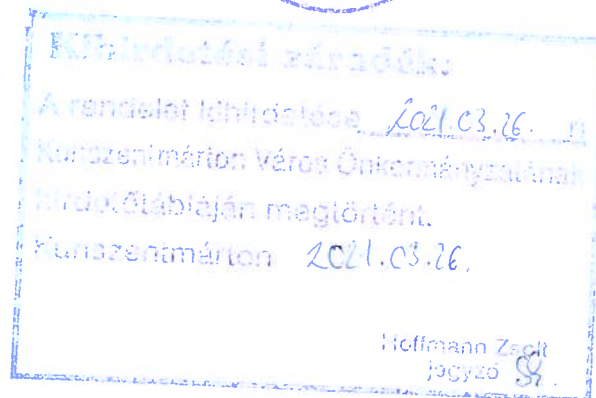 Kihirdetési záradék:
A rendelet kihirdetése 2021.03.26. n
Kunszentmárton Város Önkormányzatának
hirdetőtábláján megtörtént.
Kunszentmárton 2021.03.26.
Hoffmann Zsolt
jegyző